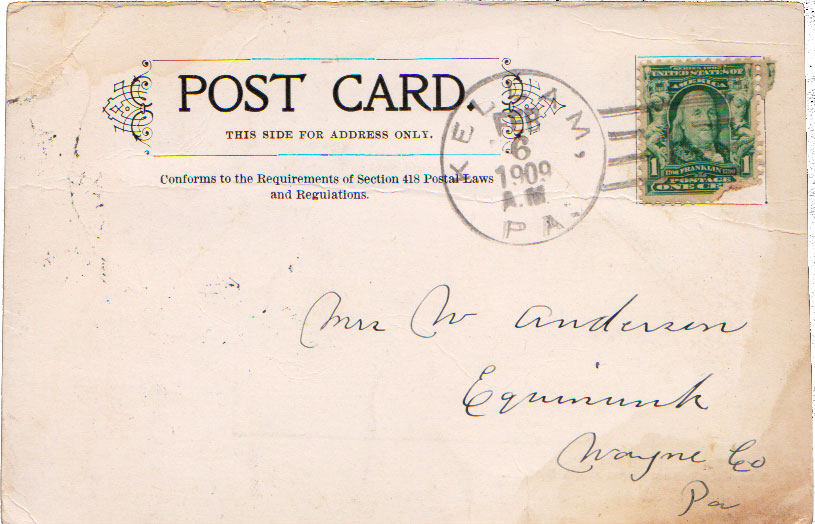 POST CARD.
THIS SIDE FOR ADDRESS ONLY.
Conforms to the Requirements of Section 418 Postal Laws
and Regulations.
KELLAM,
6
1909
A.M.
PA.
SERIES 1902
UNITED STATES OF
AMERICA
1 FRANKLIN 1
POSTAGE
ONE CE
Mrs W Anderson
Equinunk
Wayne Co
Pa